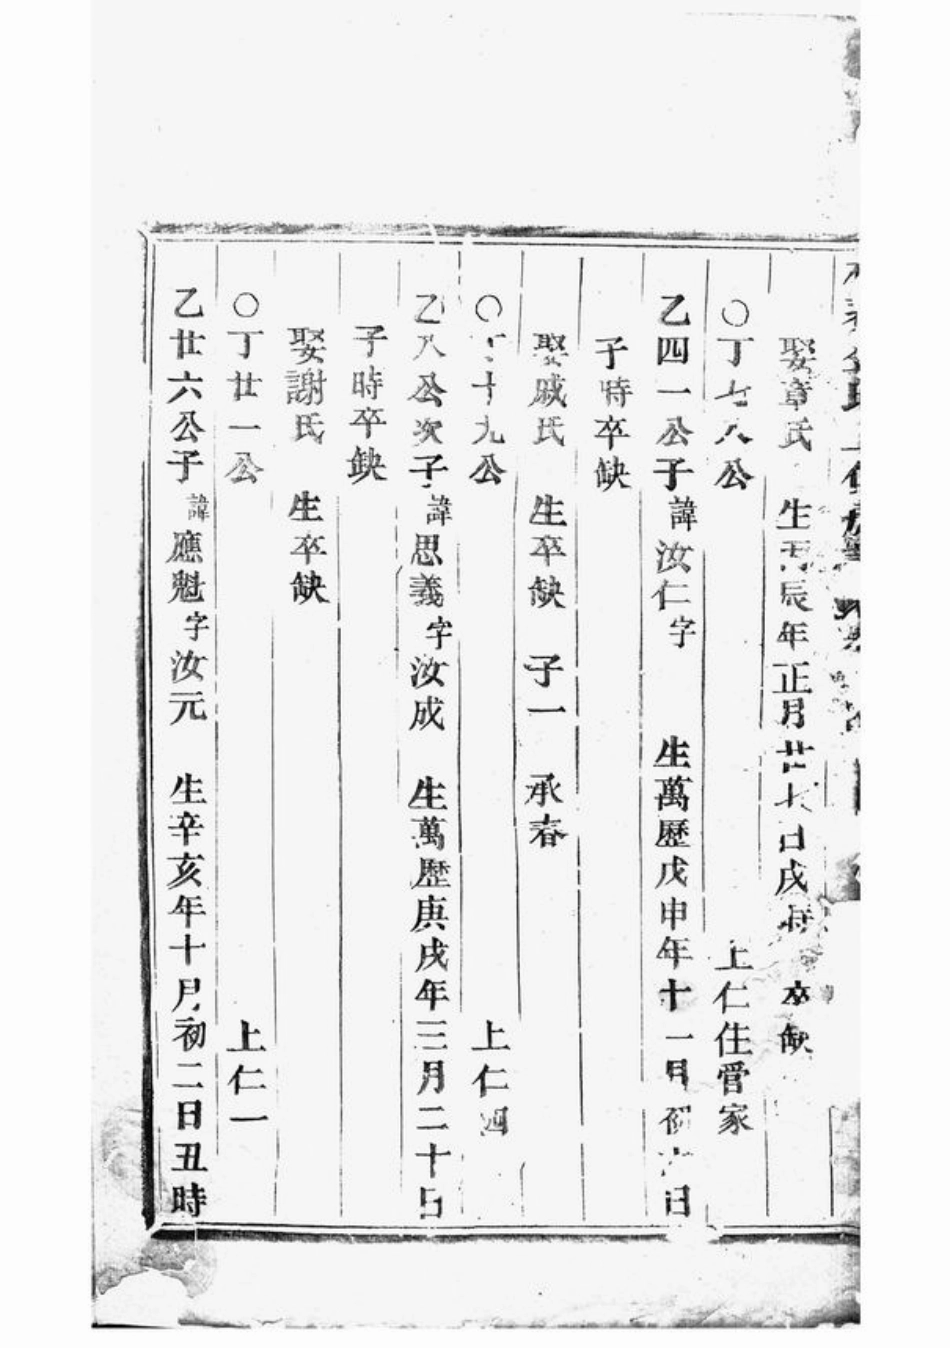 娶章氏 生丙辰年正月廿七日戌時 卒缺
〇丁七八公 上仁住管家
乙四一公子諱汝仁字 生萬歷戊申年十一月初六日
子時卒缺
娶戚氏 生卒缺 子一 承春
〇丁十九公 上仁四
乙八公次子諱思義字汝成 生萬歷庚戌年三月二十日
子時卒缺
娶謝氏 生卒缺
〇丁廿一公 上仁一
乙廿六公子諱應魁字汝元 生辛亥年十月初二日丑時